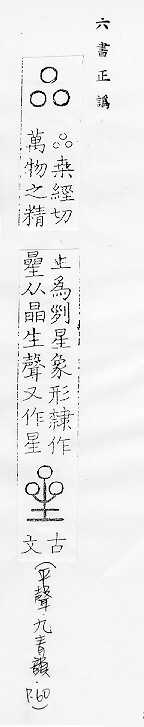 六書正譌
桒經切
萬物之精
上爲列星象形隸作
曐从晶生聲又作星
古
文
(平聲.九青韻.P.60)